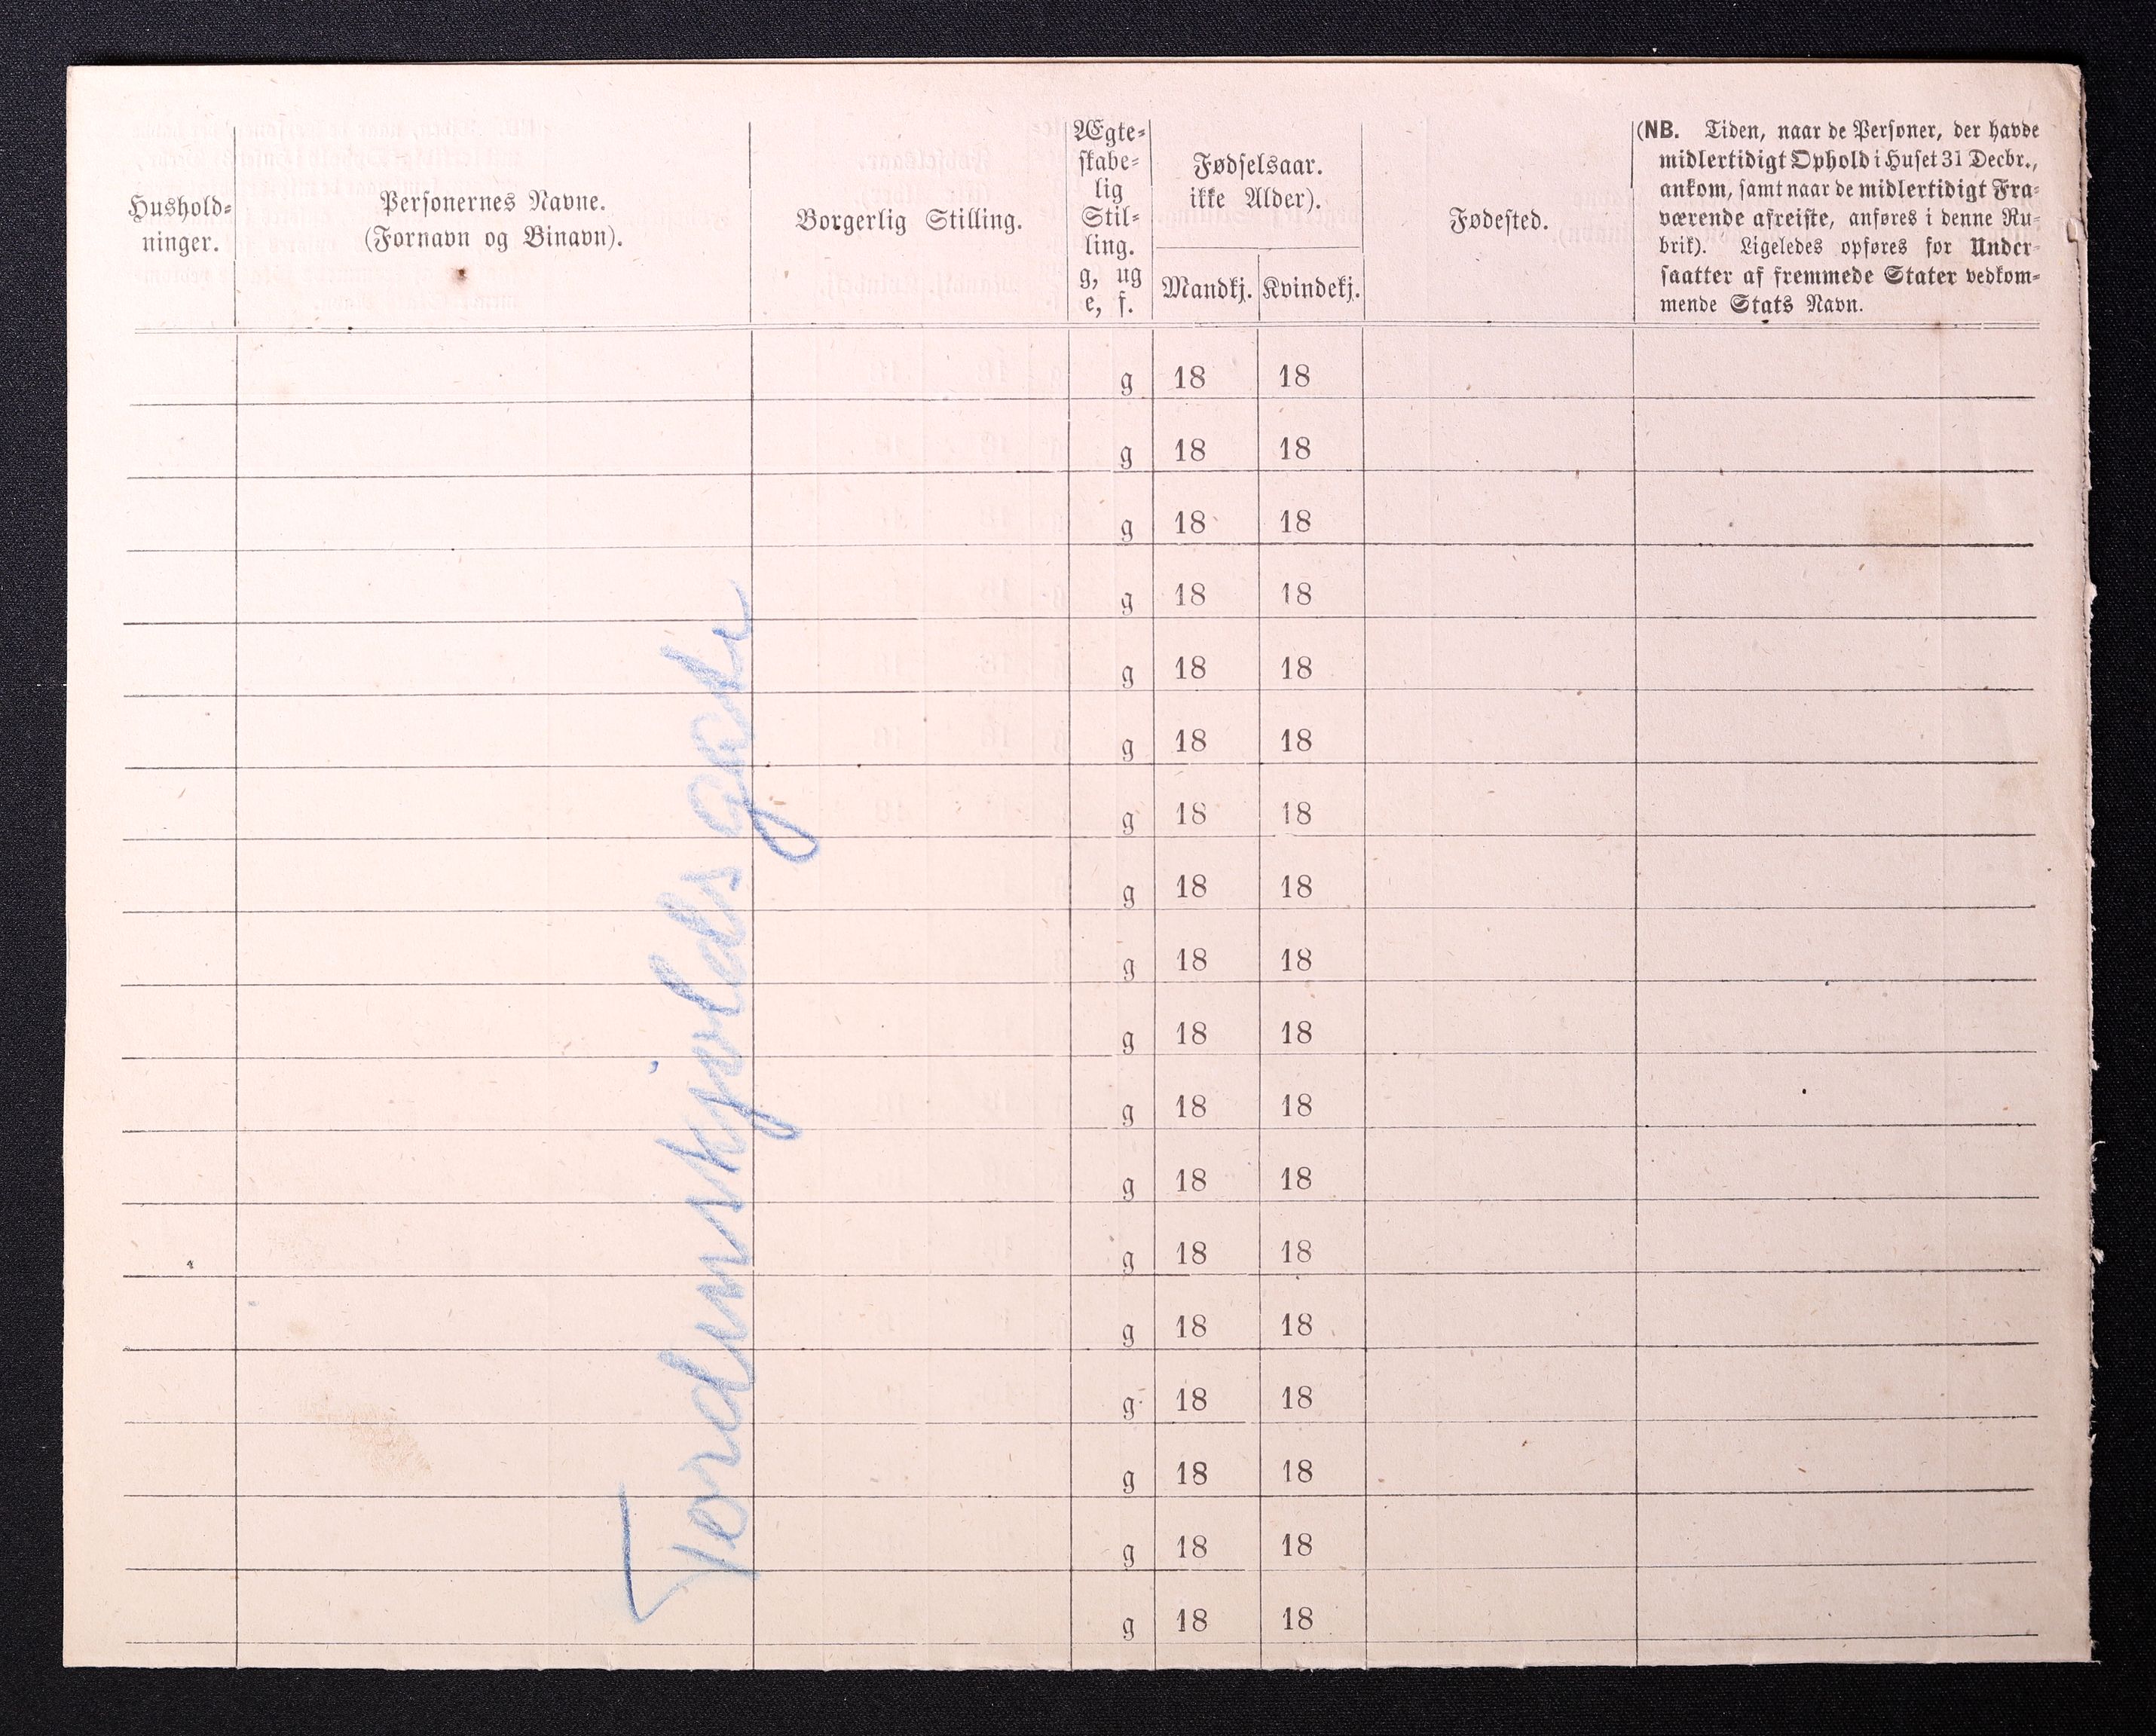 Hushold-
ninger.
Personernes Navne.
(Fornavn og Binavn).
Borgerlig Stilling.
Ægte-
skabe-
lig
Stil-
ling.
g, ug
e, f.
Fødselsaar.
ikke Alder).
Mandkj. Kvindekj.
Fødested.
(NB. Tiden, naar de Personer, der havde
midlertidigt Ophold i Huset 31 Decbr.,
ankom, samt naar de midlertidigt Fra-
værende afreiste, anføres i denne Ru-
brik). Ligeledes opføres for Under-
saatter af fremmede Stater vedkom-
mende Stats Navn.
g 18 18
g 18 18
g 18 18
g 18 18
g 18 18
g 18 18
g 18 18
g 18 18
g 18 18
g 18 18
g 18 18
g 18 18
g 18 18
g 18 18
g 18 18
g 18 18
g 18 18
g 18 18
Tordenskjolds gade